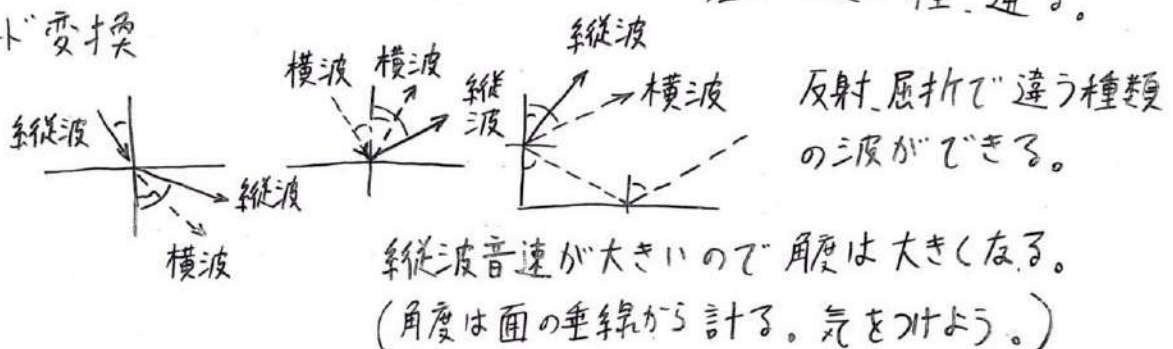 ド変換
縦波
縦波
横波
横波 横波
縦波
縦波
横波
反射、屈折で違う種類
の波ができる。
縦波音速が大きいので角度は大きくなる。
(角度は面の垂線から計る。気をつけよう。)